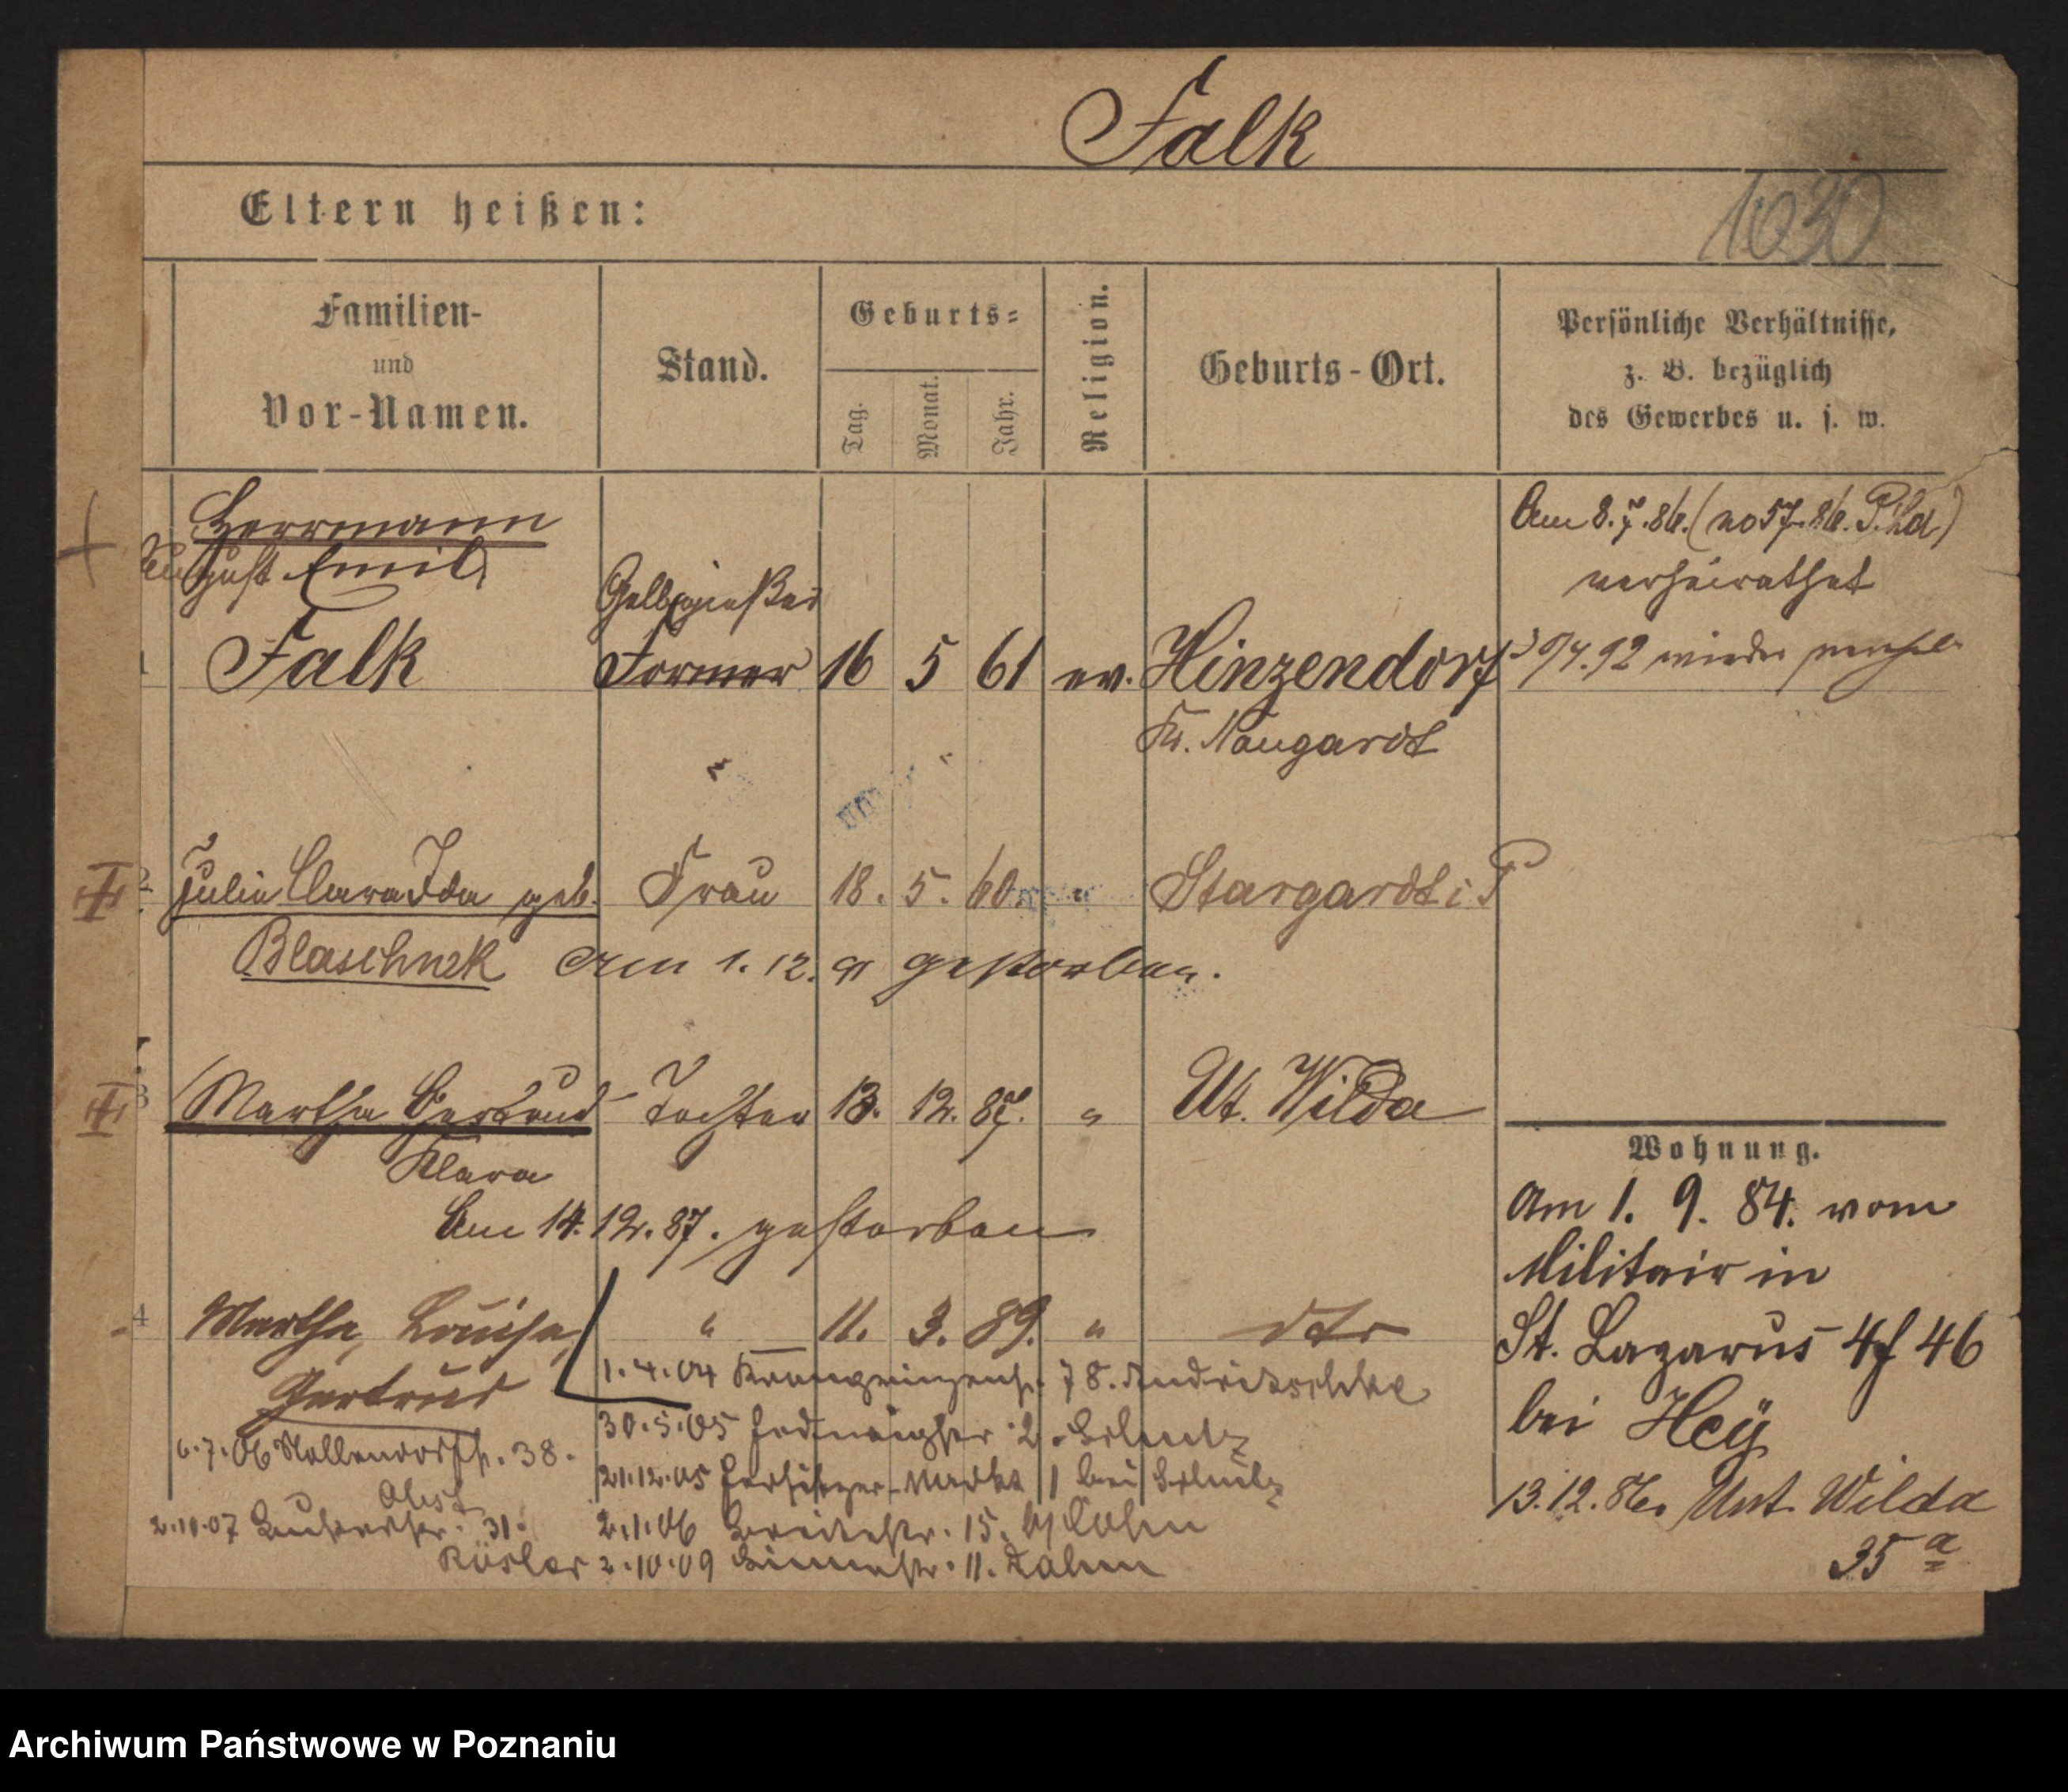 Falk
1030
Eltern heißen:
Familien-
und
Vor-Namen.
Stand.
Geburts-
Tag.
Monat.
Jahr.
Religion.
Geburts-Ort.
Persönliche Verhältnisse,
z. B. bezüglich
des Gewerbes u. s. w.
Herrmann
August Emil
Falk
Gelbgießer
Former
16 5 61 ev.
Hinzendorf
Kr. Naugardt
Am 8.7.86. (no 57.86.
verheirathet
30/4.92 wieder
2 Julie Clara Ida geb.
Blaschnek
Frau
18. 5. 60
Stargardt i P
Am 1.12.91 gestorben.
3 Martha Gertrud
Klara
Tochter
13. 12. 87. "
Ut. Wilda
Am 14.12.87. gestorben
4 Martha, Louise,
Gertrud
" 11. 3. 89. " dto
1.4.04 Kronprinzenstr. 78. Andritschke
30.5.05 2. Schulz
21.12.05 Markt 1 bei Schulz
2.1.06 Breitestr. 15. b/Cohn
2.10.09 11.
6.7.06 Nollendorfstr. 38.
2.10.07 31.
Rösler
Wohnung.
Am 1. 9. 84. vom
Militair in
St. Lazarus 46
bei Heÿ
13.12.86. Unt. Wilda
35 a
Archiwum Państwowe w Poznaniu